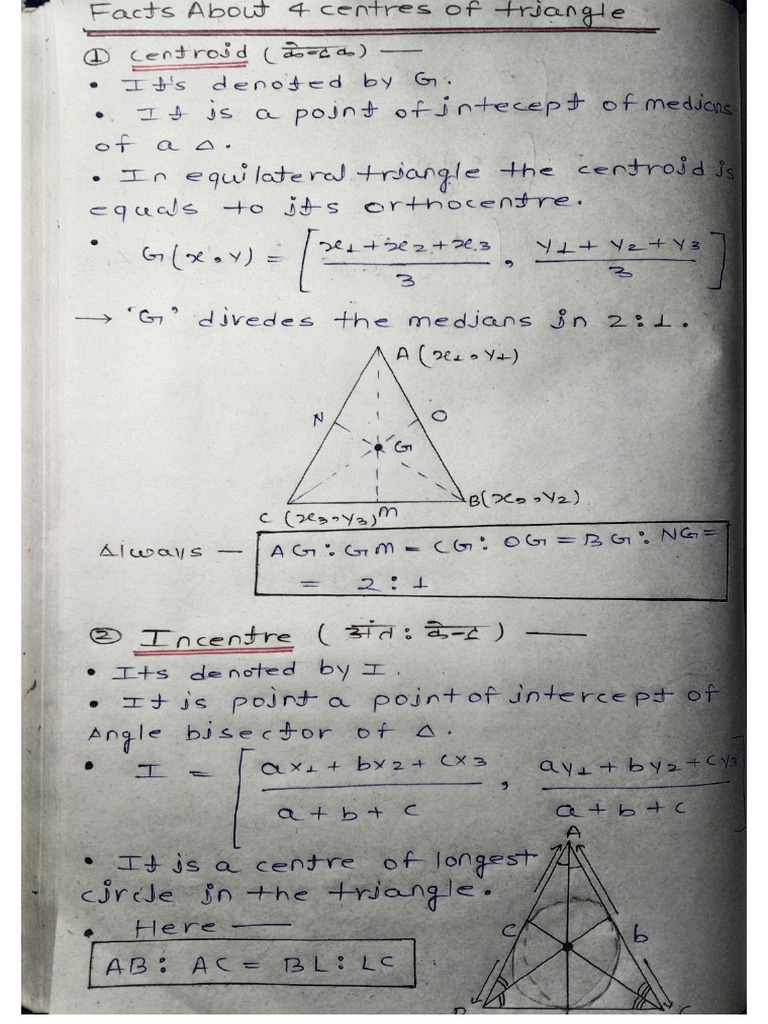 Facts About 4 centres of triangle
① Centroid (केन्द्रक) —
• It's denoted by G.
• It is a point of intecept of medians
of a △.
• In equilateral triangle the centroid is
equals to its orthocentre.
• G(x,y) = [x₁+x₂+x₃/3, y₁+y₂+y₃/3]
→ 'G' divedes the medians in 2:1.
A(x₁,y₁)
N
O
G
B(x₂,y₂)
C (x₃,y₃)
M
Always — AG:GM = CG:OG = BG:NG =
= 2:1
② Incentre (अंत: केन्द्र) —
• Its denoted by I.
• It is point a point of intercept of
Angle bisector of △.
• I = [ax₁+bx₂+cx₃/a+b+c, ay₁+by₂+cy₃/a+b+c]
• It is a centre of longest
circle in the triangle.
• Here —
AB: AC = BL: LC
A
c
b